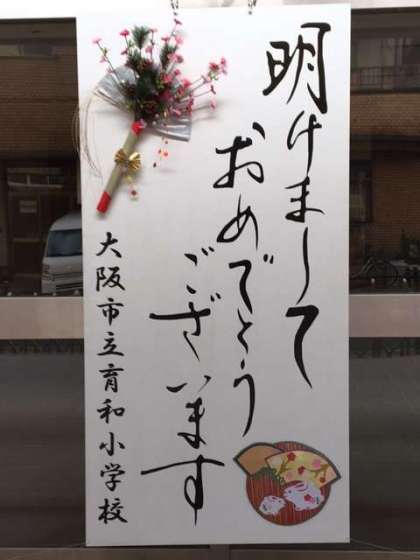 明けまして
おめでとう
ございます
大阪市立育和小学校